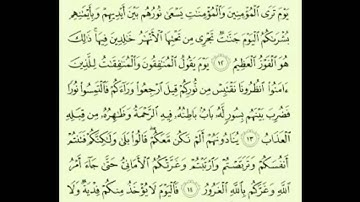 يَوْمَ تَرَى ٱلْمُؤْمِنِينَ وَٱلْمُؤْمِنَٰتِ يَسْعَىٰ نُورُهُم بَيْنَ أَيْدِيهِمْ وَبِأَيْمَٰنِهِم
بُشْرَىٰكُمُ ٱلْيَوْمَ جَنَّٰتٌ تَجْرِى مِن تَحْتِهَا ٱلْأَنْهَٰرُ خَٰلِدِينَ فِيهَا ذَٰلِكَ
هُوَ ٱلْفَوْزُ ٱلْعَظِيمُ ١٢ يَوْمَ يَقُولُ ٱلْمُنَٰفِقُونَ وَٱلْمُنَٰفِقَٰتُ لِلَّذِينَ
ءَامَنُوا۟ ٱنظُرُونَا نَقْتَبِسْ مِن نُّورِكُمْ قِيلَ ٱرْجِعُوا۟ وَرَآءَكُمْ فَٱلْتَمِسُوا۟ نُورًا
فَضُرِبَ بَيْنَهُم بِسُورٍ لَّهُۥ بَابٌۢ بَاطِنُهُۥ فِيهِ ٱلرَّحْمَةُ وَظَٰهِرُهُۥ مِن قِبَلِهِ
ٱلْعَذَابُ ١٣ يُنَادُونَهُمْ أَلَمْ نَكُن مَّعَكُمْ قَالُوا۟ بَلَىٰ وَلَٰكِنَّكُمْ فَتَنتُمْ
أَنفُسَكُمْ وَتَرَبَّصْتُمْ وَٱرْتَبْتُمْ وَغَرَّتْكُمُ ٱلْأَمَانِىُّ حَتَّىٰ جَآءَ أَمْرُ
ٱللَّهِ وَغَرَّكُم بِٱللَّهِ ٱلْغَرُورُ ١٤ فَٱلْيَوْمَ لَا يُؤْخَذُ مِنكُمْ فِدْيَةٌ وَلَا